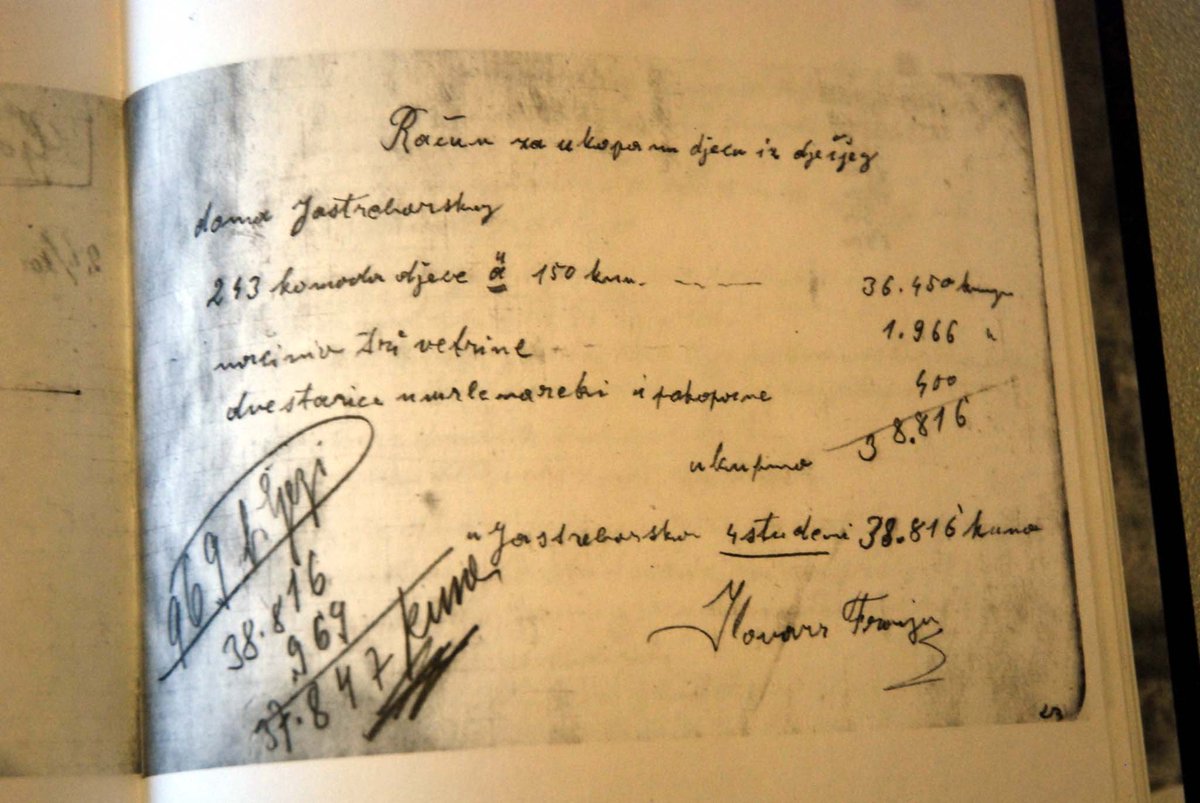 Račun za ukopanu djecu iz dječjeg
doma Jastrebarskog
243 komada djece ä 150 kuna. 36.450 kuna
1.966 "
dvestarice umrle i pokopane 400
ukupno 38.816
u Jastrebarsko 4 studeni 38.816 kuna
Franjo
969
38.816
969
37.847 kuna
23